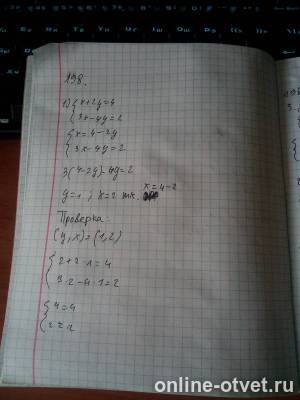 198.
1) { x+2y=4
{ 3x-4y=2
{ x=4-2y
{ 3x-4y=2
3(4-2y)-4y=2
y=1 ; x=2 т.к. x=4-2
Проверка:
(y,x)=(1,2)
{ 2+2·1=4
{ 3·2-4·1=2
{ 4=4
{ 2=2
online-otvet.ru